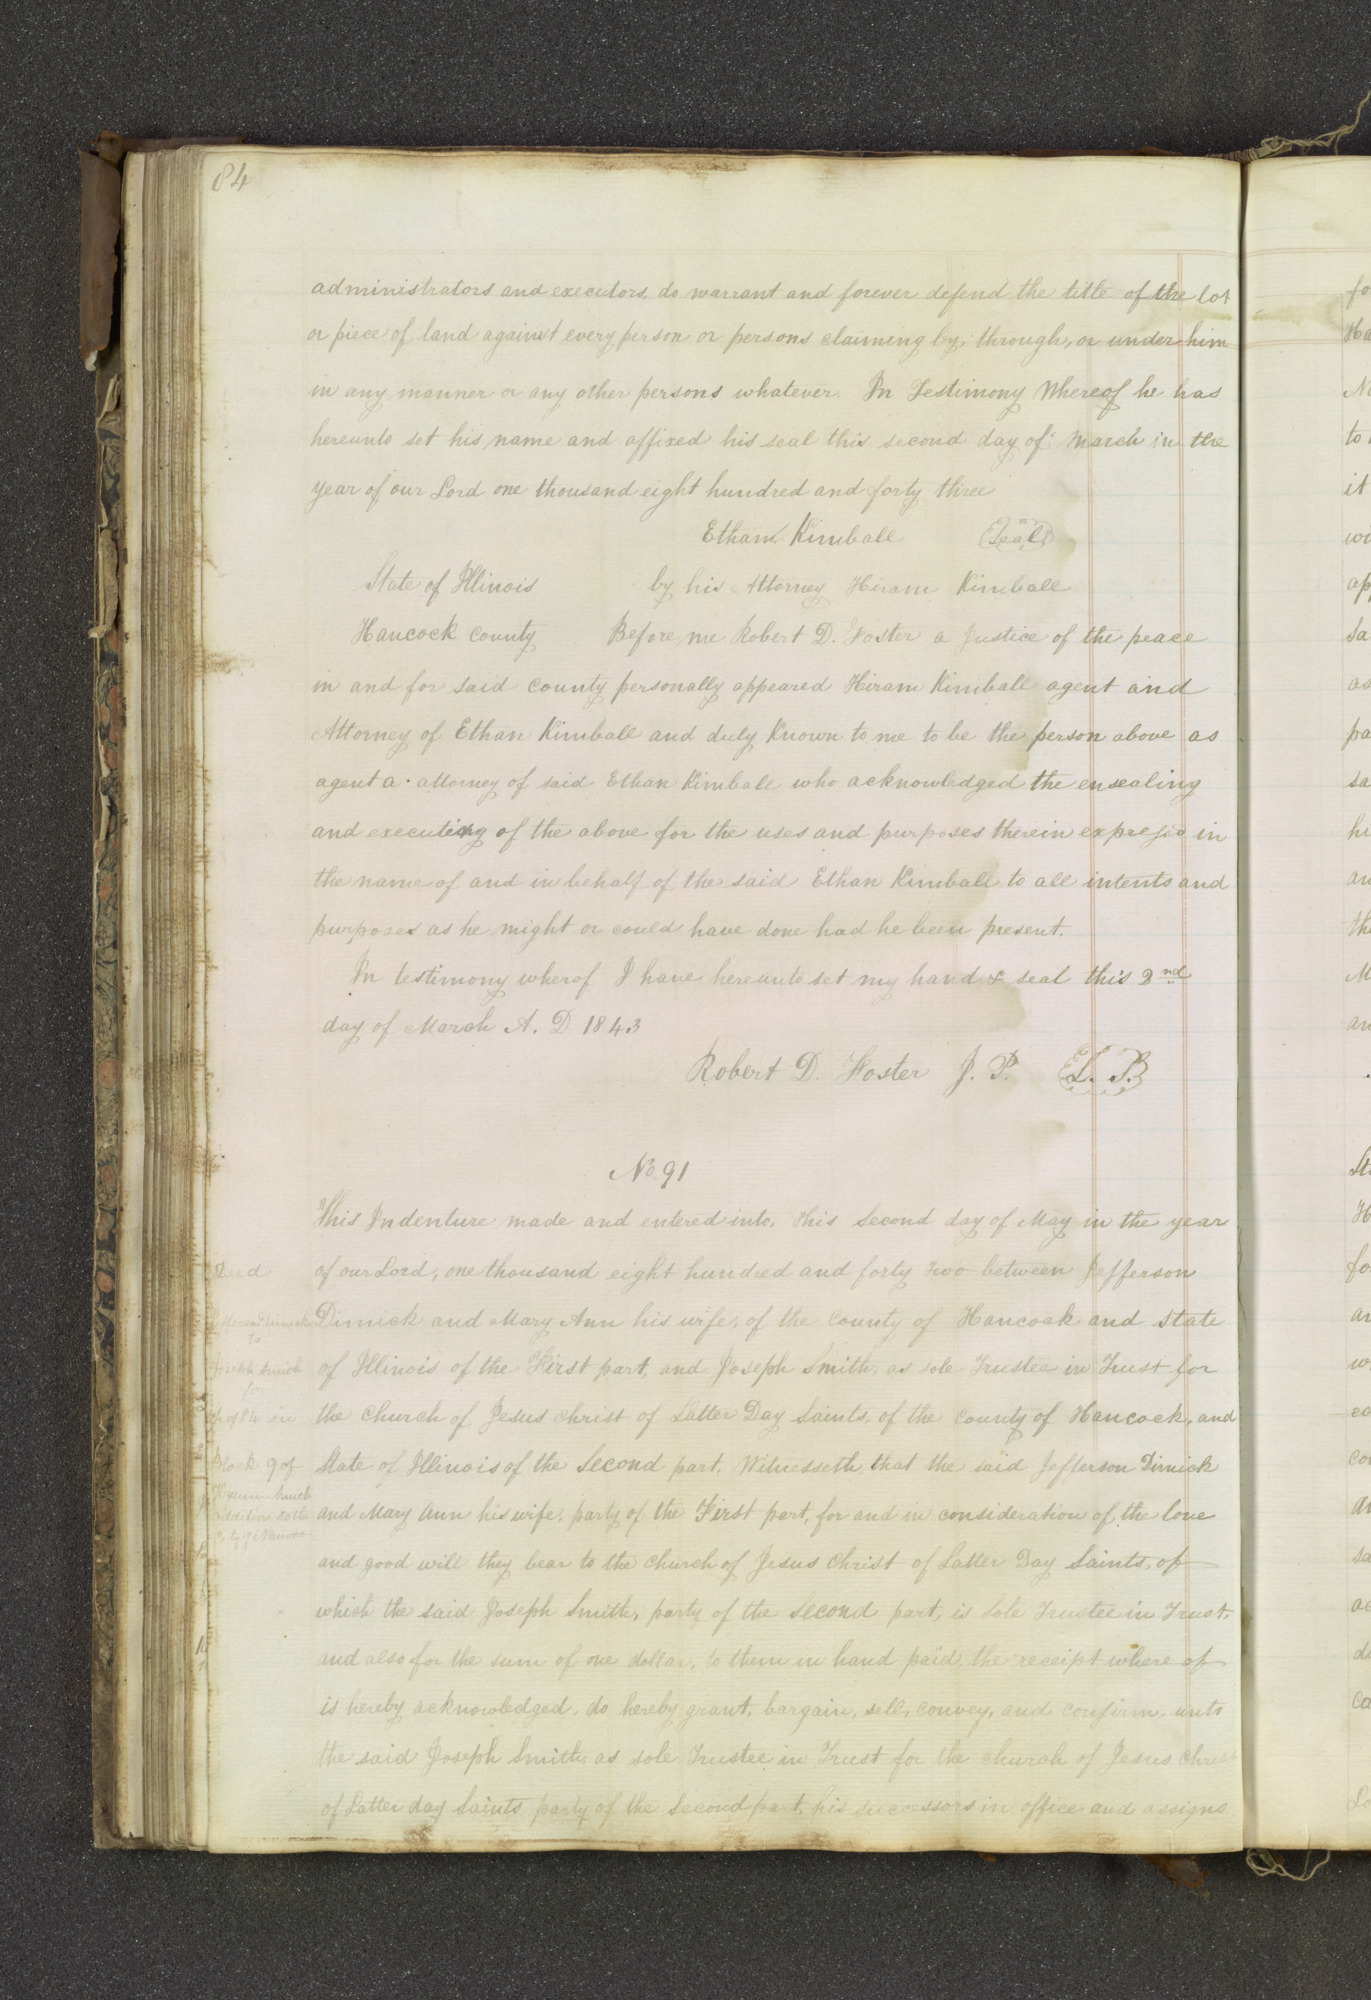 84
administrators and executors, do warrant and forever defend the title of the lot
or piece of land against every person or persons claiming by, through, or under him
in any manner or any other persons whatever. In Testimony Whereof he has
hereunto set his name and affixed his seal this second day of March in the
year of our Lord one thousand eight hundred and forty three
Ethan Kimball Seal
State of Illinois by his Attorney Hiram Kimball
Hancock County Before me Robert D. Foster a Justice of the peace
in and for said County personally appeared Hiram Kimball agent and
Attorney of Ethan Kimball and duly Known to me to be the person above as
agent a. attorney of said Ethan Kimball who acknowledged the ensealing
and executing of the above for the uses and purposes therein expressd in
the name of and in behalf of the said Ethan Kimball to all intents and
purposes as he might or could have done had he been present.
In testimony wherof I have hereunto set my hand & seal this 2nd
day of March A. D 1843
Robert D. Foster J. P. L. S.
No. 91
This Indenture made and entered into, this Second day of May in the year
Deed
of our Lord, one thousand eight hundred and forty two between Jefferson
Dimick and Mary Ann his wife, of the County of Hancock and State
to
of Illinois of the First part, and Joseph Smith, as sole Trustee in Trust for
Joseph Smith
for
the Church of Jesus Christ of Latter Day Saints, of the County of Hancock, and
State of Illinois of the Second part, Witnesseth, that the said Jefferson Dimick
Block 9 of
Hyrum Smith
and Mary Ann his wife, party of the First part, for and in consideration of the love
addition to the
City of Nauvoo
and good will they bear to the Church of Jesus Christ of Latter Day Saints, of
which the said Joseph Smith, party of the second part, is Sole Trustee in Trust,
and also for the sum of one dollar, to them in hand paid, the receipt where of
is hereby acknowledged, do hereby grant, bargain, sell, convey, and confirm, unto
the said Joseph Smith, as sole Trustee in Trust for the Church of Jesus Christ
of Latter day Saints, party of the Second part, his successors in office and assigns